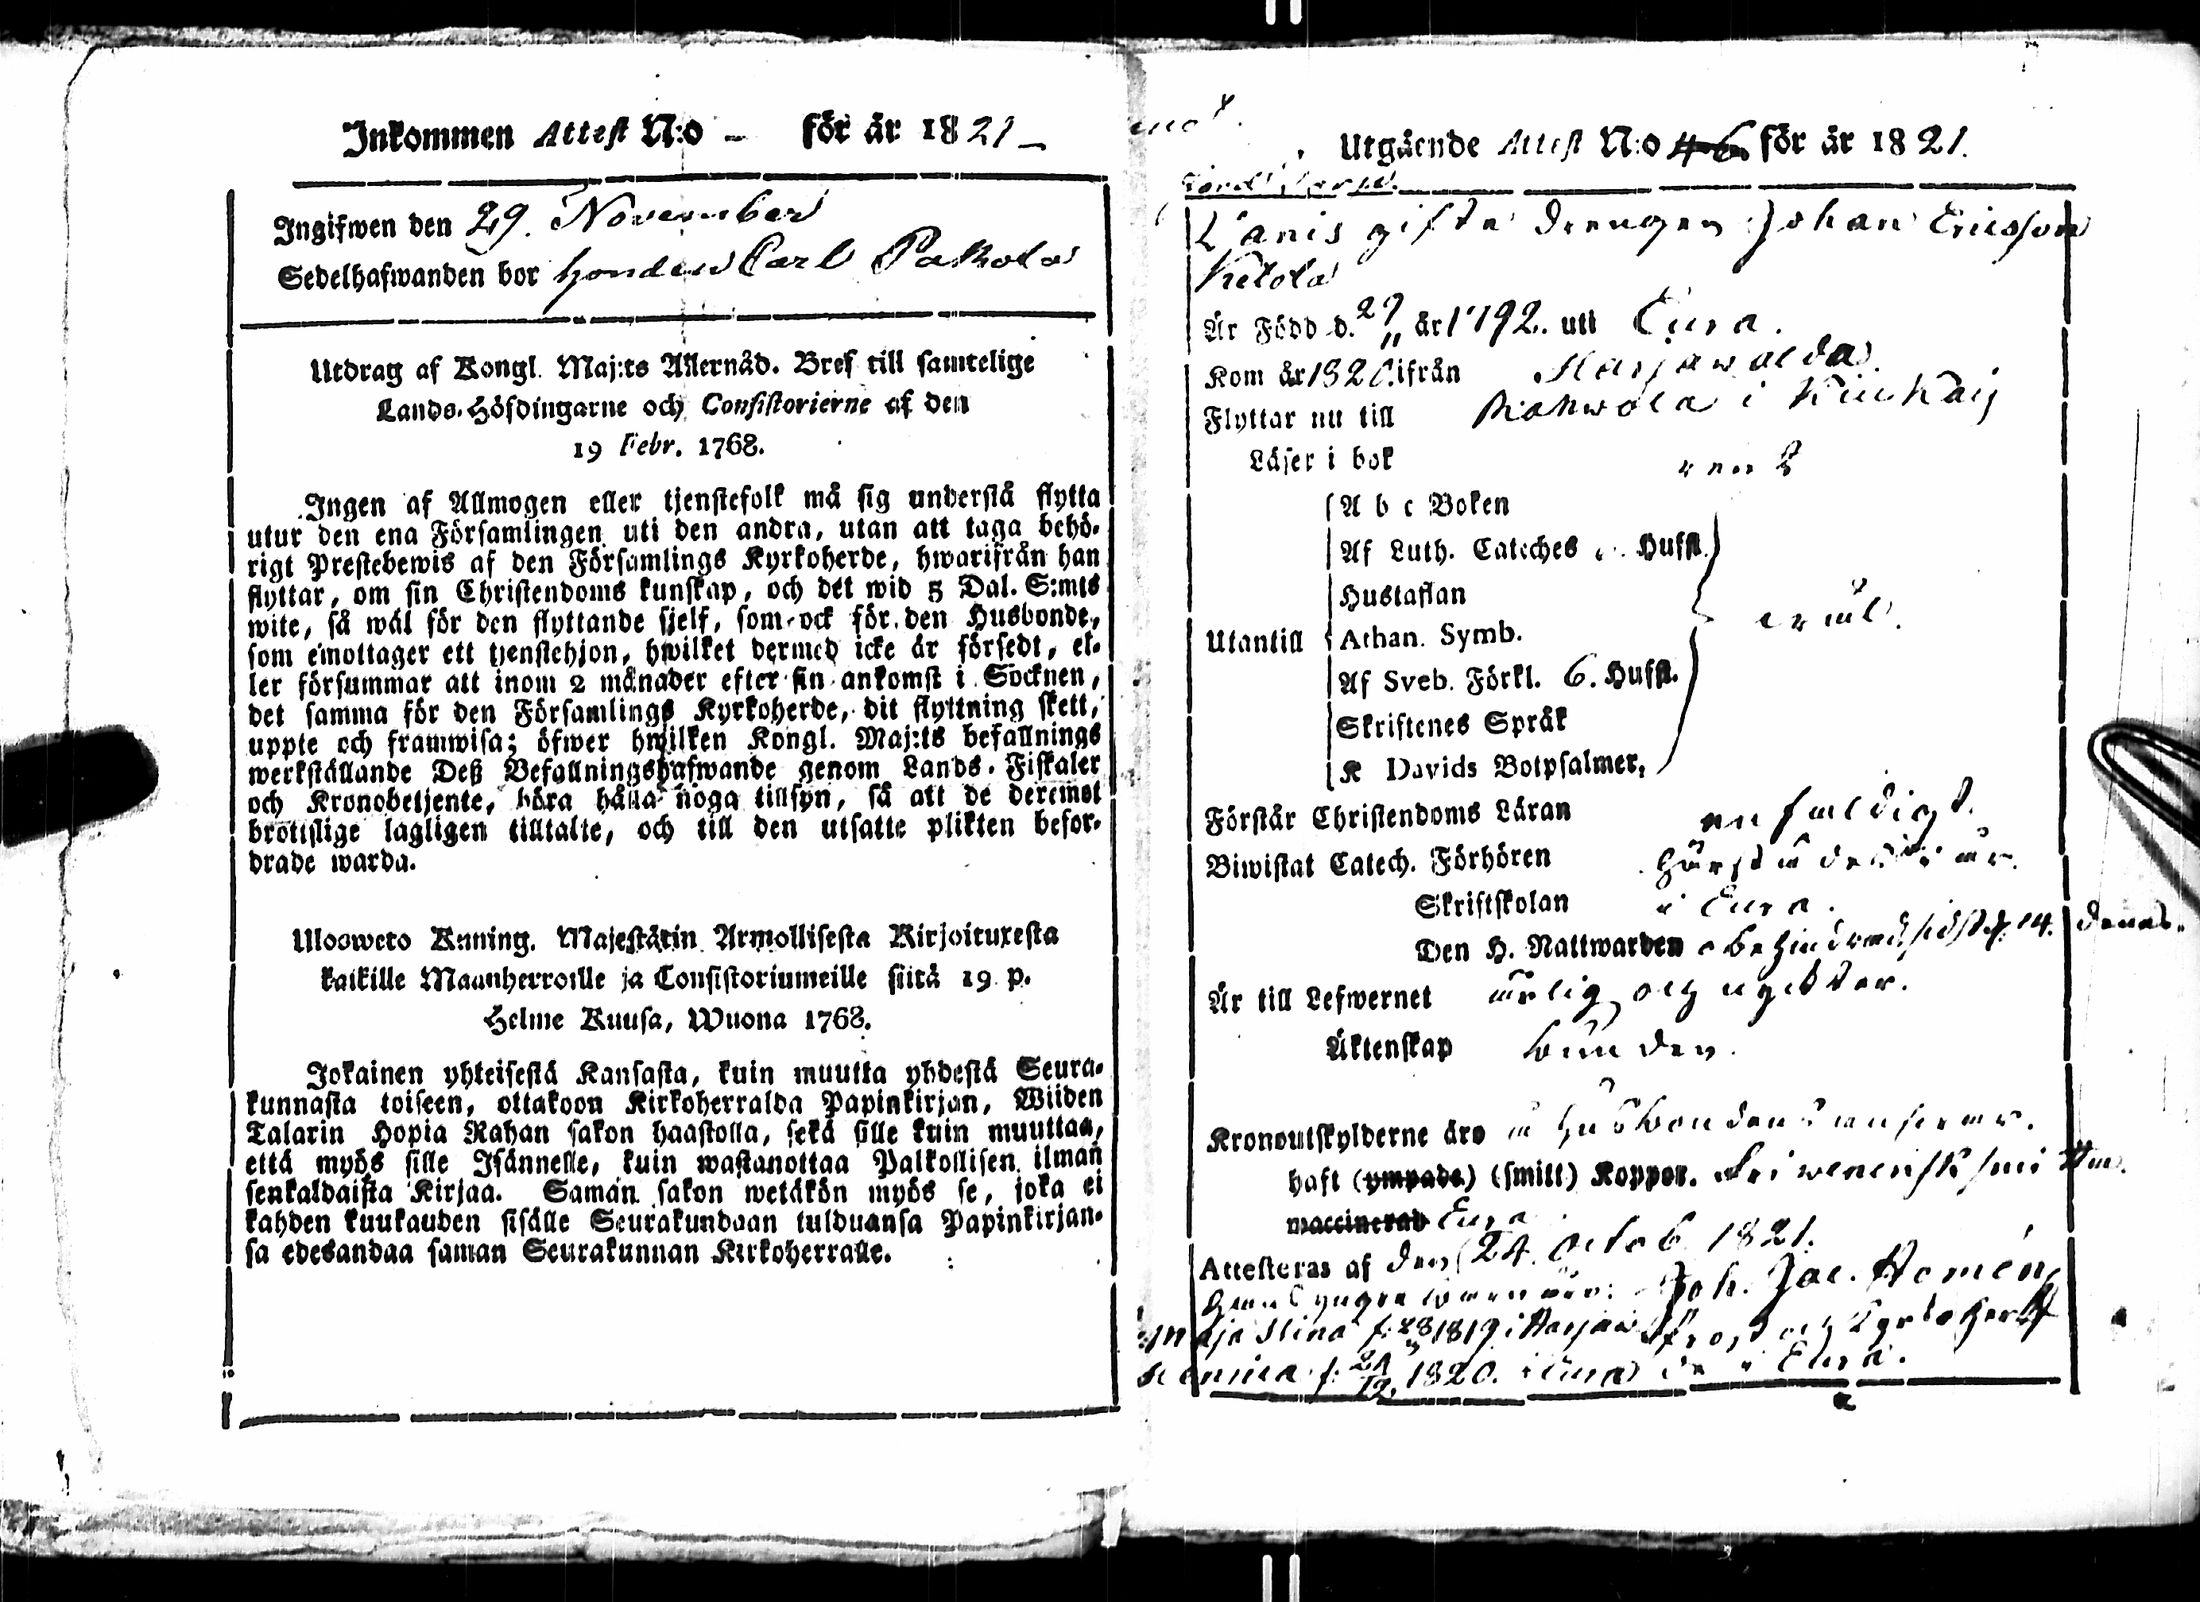 Inkommen Attest N:o – för år 1821 –
Ingifwen den 29. November
Sedelhafwanden bor hos Carl
Utdrag af Kongl. Maj:ts Allernåd. Bref till samtelige
Lands-Höfdingarne och Consistorierne af den
19 Febr. 1768.
Ingen af Allmogen eller tjenstefolk må sig understå flytta
utur den ena Församlingen uti den andra, utan att taga behö-
rigt Prestebewis af den Församlings Kyrkoherde, hwarifrån han
flyttar, om sin Christendoms kunskap, och det wid 5 Dal. S:mts
wite, så wäl för den flyttande sjelf, som ock för den Husbonde,
som emottager ett tjenstehjon, hwilket dermed icke är försedt, el-
ler försummar att inom 2 månader efter sin ankomst i Socknen,
det samma för den Församlings Kyrkoherde, dit flyttning skett,
uppte och framwisa; öfwer hwilken Kongl. Maj:ts befallnings
werkställande Deß Befallningshafwande genom Lands-Fiskaler
och Kronobetjente, böra hålla noga tillsyn, så att de deremot
brottslige lagligen tilltalte, och till den utsatte plikten befor-
drade warda.
Ulosweto Kuning. Majestätin Armollisesta Kirjoituxesta
kaikille Maanherroille ja Consistoriumeille siitä 19 p.
Helme Kuusa, Wuona 1768.
Jokainen yhteisestä Kansasta, kuin muutta yhdestä Seura-
kunnasta toiseen, ottakoon Kirkoherralda Papinkirjan, Wiiden
Talarin Hopia Rahan sakon haastolla, sekä sille kuin muuttaa,
että myös sille Isännelle, kuin wastanottaa Palkollisen ilman
senkaldaista Kirjaa. Saman sakon wetäkön myös se, joka ei
kahden kuukauden sisälle Seurakundaan tulduansa Papinkirjan-
sa edesandaa saman Seurakunnan Kirkoherralle.
Utgående Attest N:o för år 1821.
gifte drengen Johan Ericsson
Ketola
Är Född d. 29/11 år 1792. uti Eura.
Kom år 1820. ifrån Harjawalda
Flyttar nu till i Kiukais
Läser i bok rent
A b c Boken
Af Luth. Cateches Hufst.
Hustaflan
Utantill Athan. Symb.
Af Sveb. Förkl. 6. Hufst.
Skriftenes Språk
K Davids Botpsalmer,
Förstår Christendoms Läran enfaldigt.
Biwistat Catech. Förhören
Skriftskolan i Eura.
Den H. Nattwarden obehindrad, sidst d. 14. dennes.
Är till Lefwernet ärlig och nykter.
Äktenskap bunden.
Kronoutskylderne äro å husbondens answar.
haft (ympade) (smitt) Koppor.
waccinerad Eura
Attesteras af den 24. Octob. 1821.
Joh. Jac. Homén
Maja Stina f. 1819 i Prost och Kyrkoherde
f. 24/12 1820. i Eura i Eura.